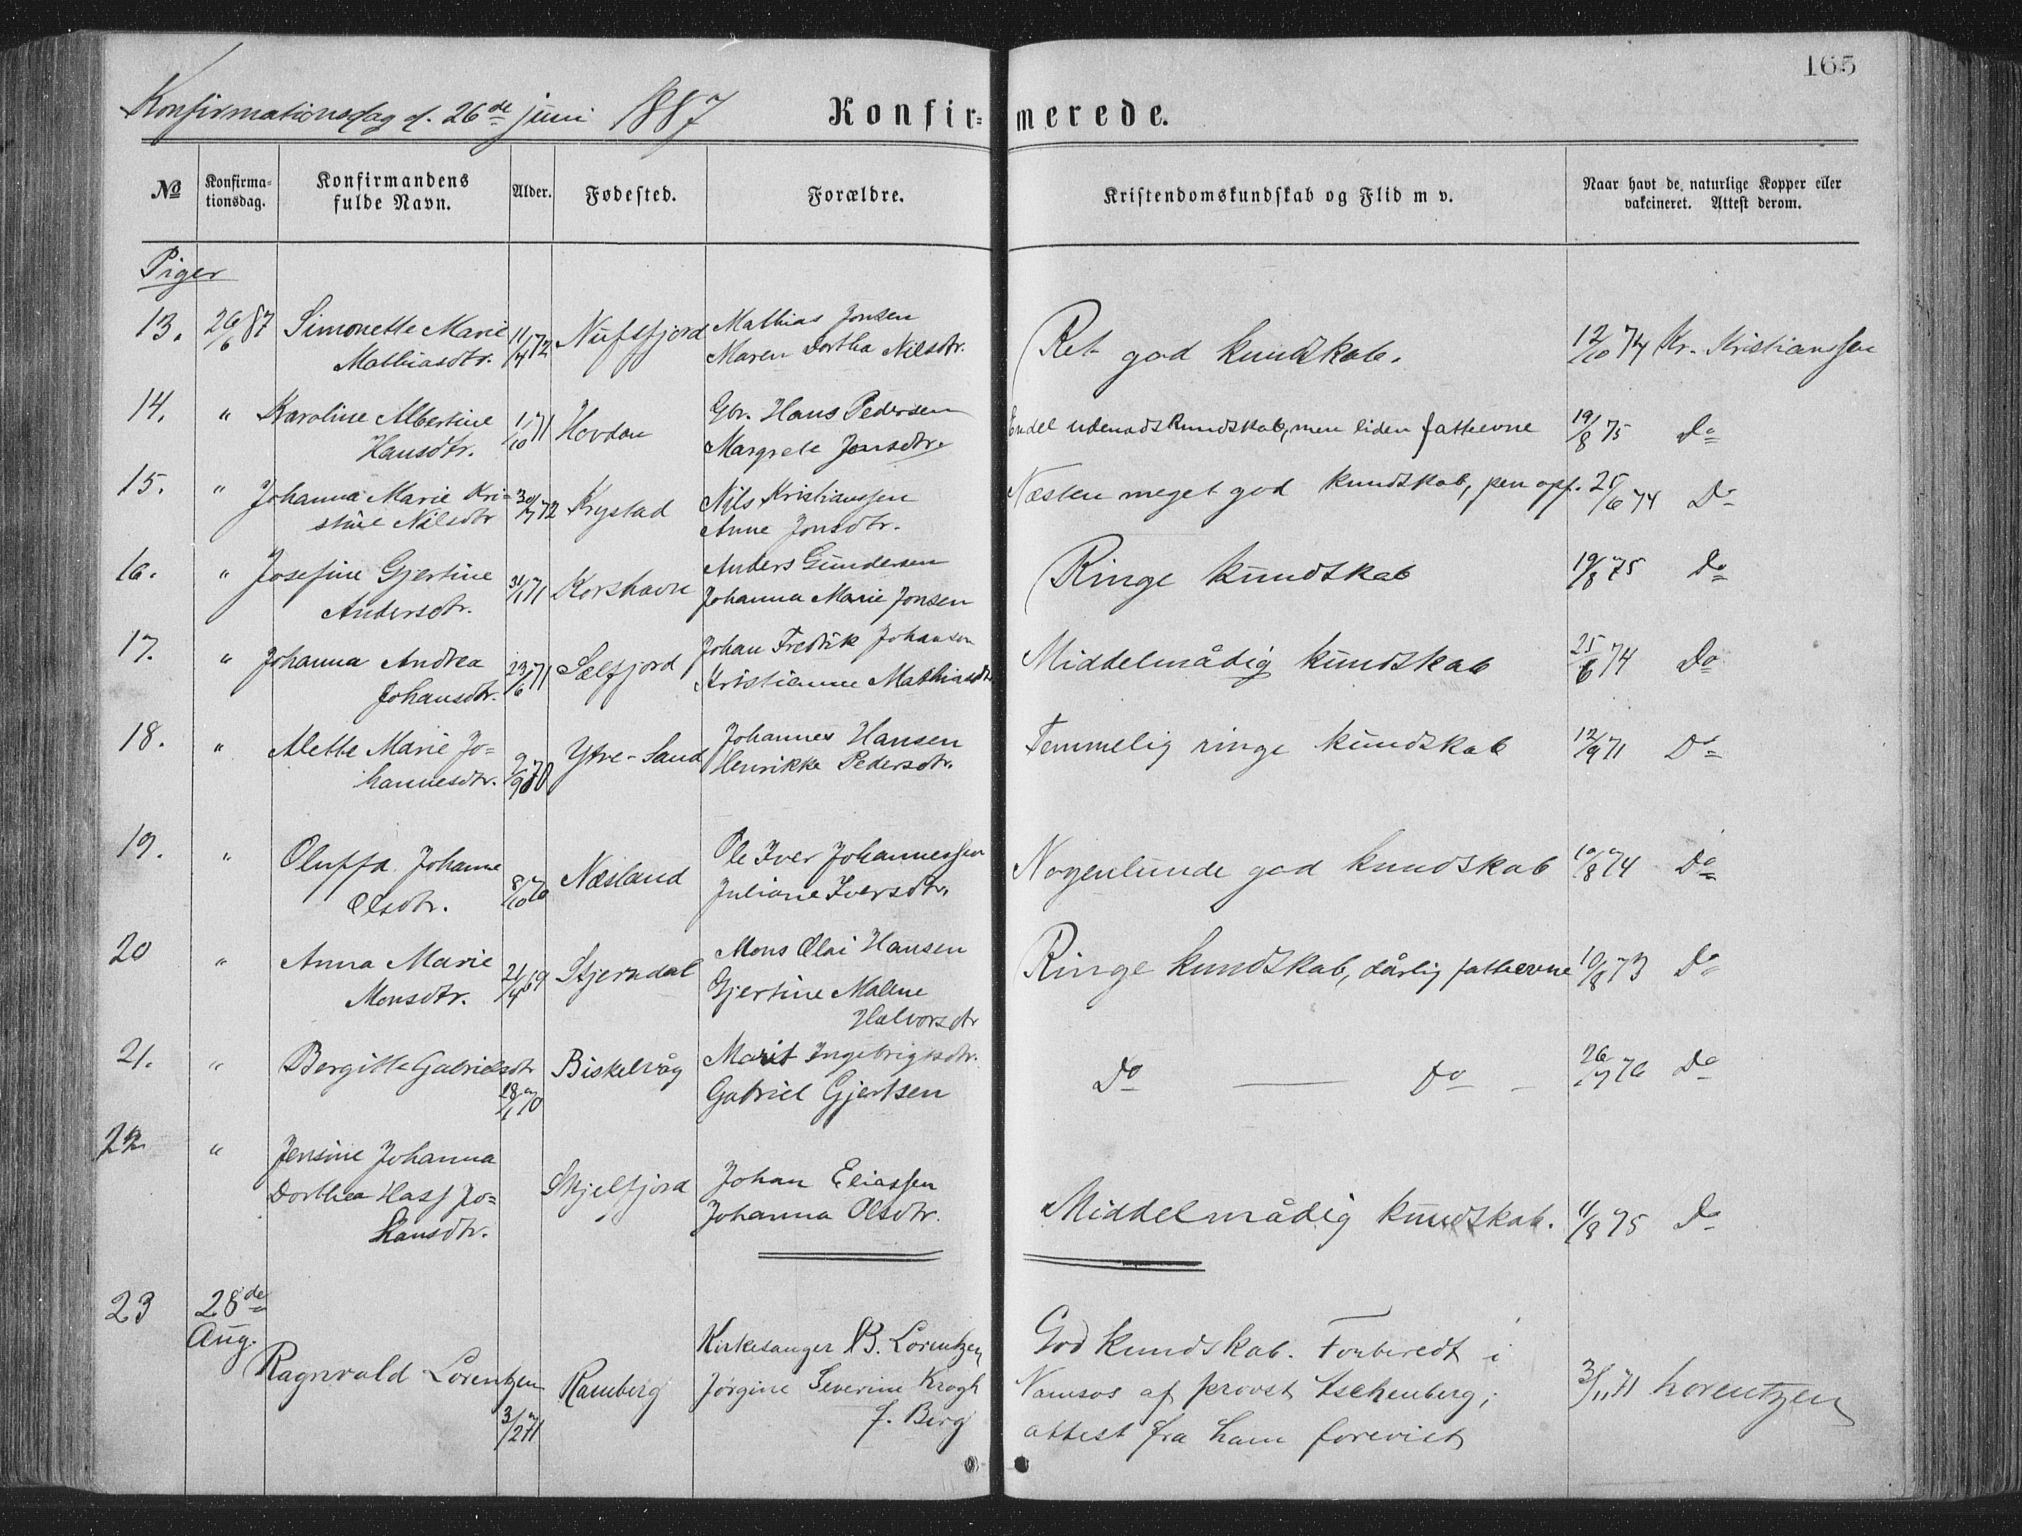 165
Konfirmationsdag d. 26de juni 1887
Konfirmerede.
No
Konfirmationsdag.
Konfirmandens fulde Navn.
Alder.
Fødested.
Forældre.
Kristendomskundskab og Flid m v.
Naar havt de naturlige Kopper eller vakcineret. Attest derom.
Piger
13. 26/6 87 Simonette Marie Mathiasdtr. 11/4 72 Nufsfjord Mathias Jonsen Maren Dortha Nilsdtr. Ret god kundskab. 12/10 74 Kr. Kristianssen
14. " Karoline Albertine Hansdtr. 1/10 71 Hovdan Gbr. Hans Pedersen Margrete Jensdtr. Endel udenadskundskab, men liden fatteevne 19/8 75 Do
15. " Johanna Marie Kristine Nilsdtr 30/7 72 Krystad Nils Kristianssen Anne Jonsdtr. Næsten meget god kundskab, pen opf. 25/6 74 Do
16. " Josefine Gjertine Andersdtr. 31/1 71 Korshavn Anders Gundersen Johanna Marie Jonsen Ringe kundskab 19/8 75 Do
17. " Johanna Andrea Johansdtr. 23/6 71 Selfjord Johan Fredrik Johansen Kristianne Mathiasdtr Middelmådig kundskab 25/6 74 Do
18. " Alette Marie Johannesdtr. 2/9 70 Ytre-Sand Johannes Hansen Henrikke Pedersdtr. Temmelig ringe kundskab 12/9 71 Do
19. " Oluffa Johanne Olsdtr. 8/10 70 Næsland Ole Iver Johannessen Juliane Iversdtr. Nogenlunde god kundskab 10/8 74 Do
20 " Anna Marie Monsdtr. 21/4 69 Stjerndal Mons Olai Hansen Gjertine Malene Halvorsdtr Ringe kundskab, dårlig fatteevne 10/8 73 Do
21. " Bergitte Gabrielsdtr 18/1 70 Biskelvåg Marit Ingebrigtsdtr. Gabriel Gjertsen Do — Do — 26/7 76 Do
22 " Jensine Johanna Dorthea Hass Johansdtr. Skjelfjord Johan Eliassen Johanna Olsdtr. Middelmådig kundskab. 11/8 75 Do
23 28de Aug. Ragnvald Lorentzen 3/2 71 Ramberg Kirkesanger B. Lorentzen Jørgine Severine Krogh f. Berg God kundskab. Forberedt i Namsos af provst Eschenberg; attest fra ham forevist 3/11 71 Lorentzen